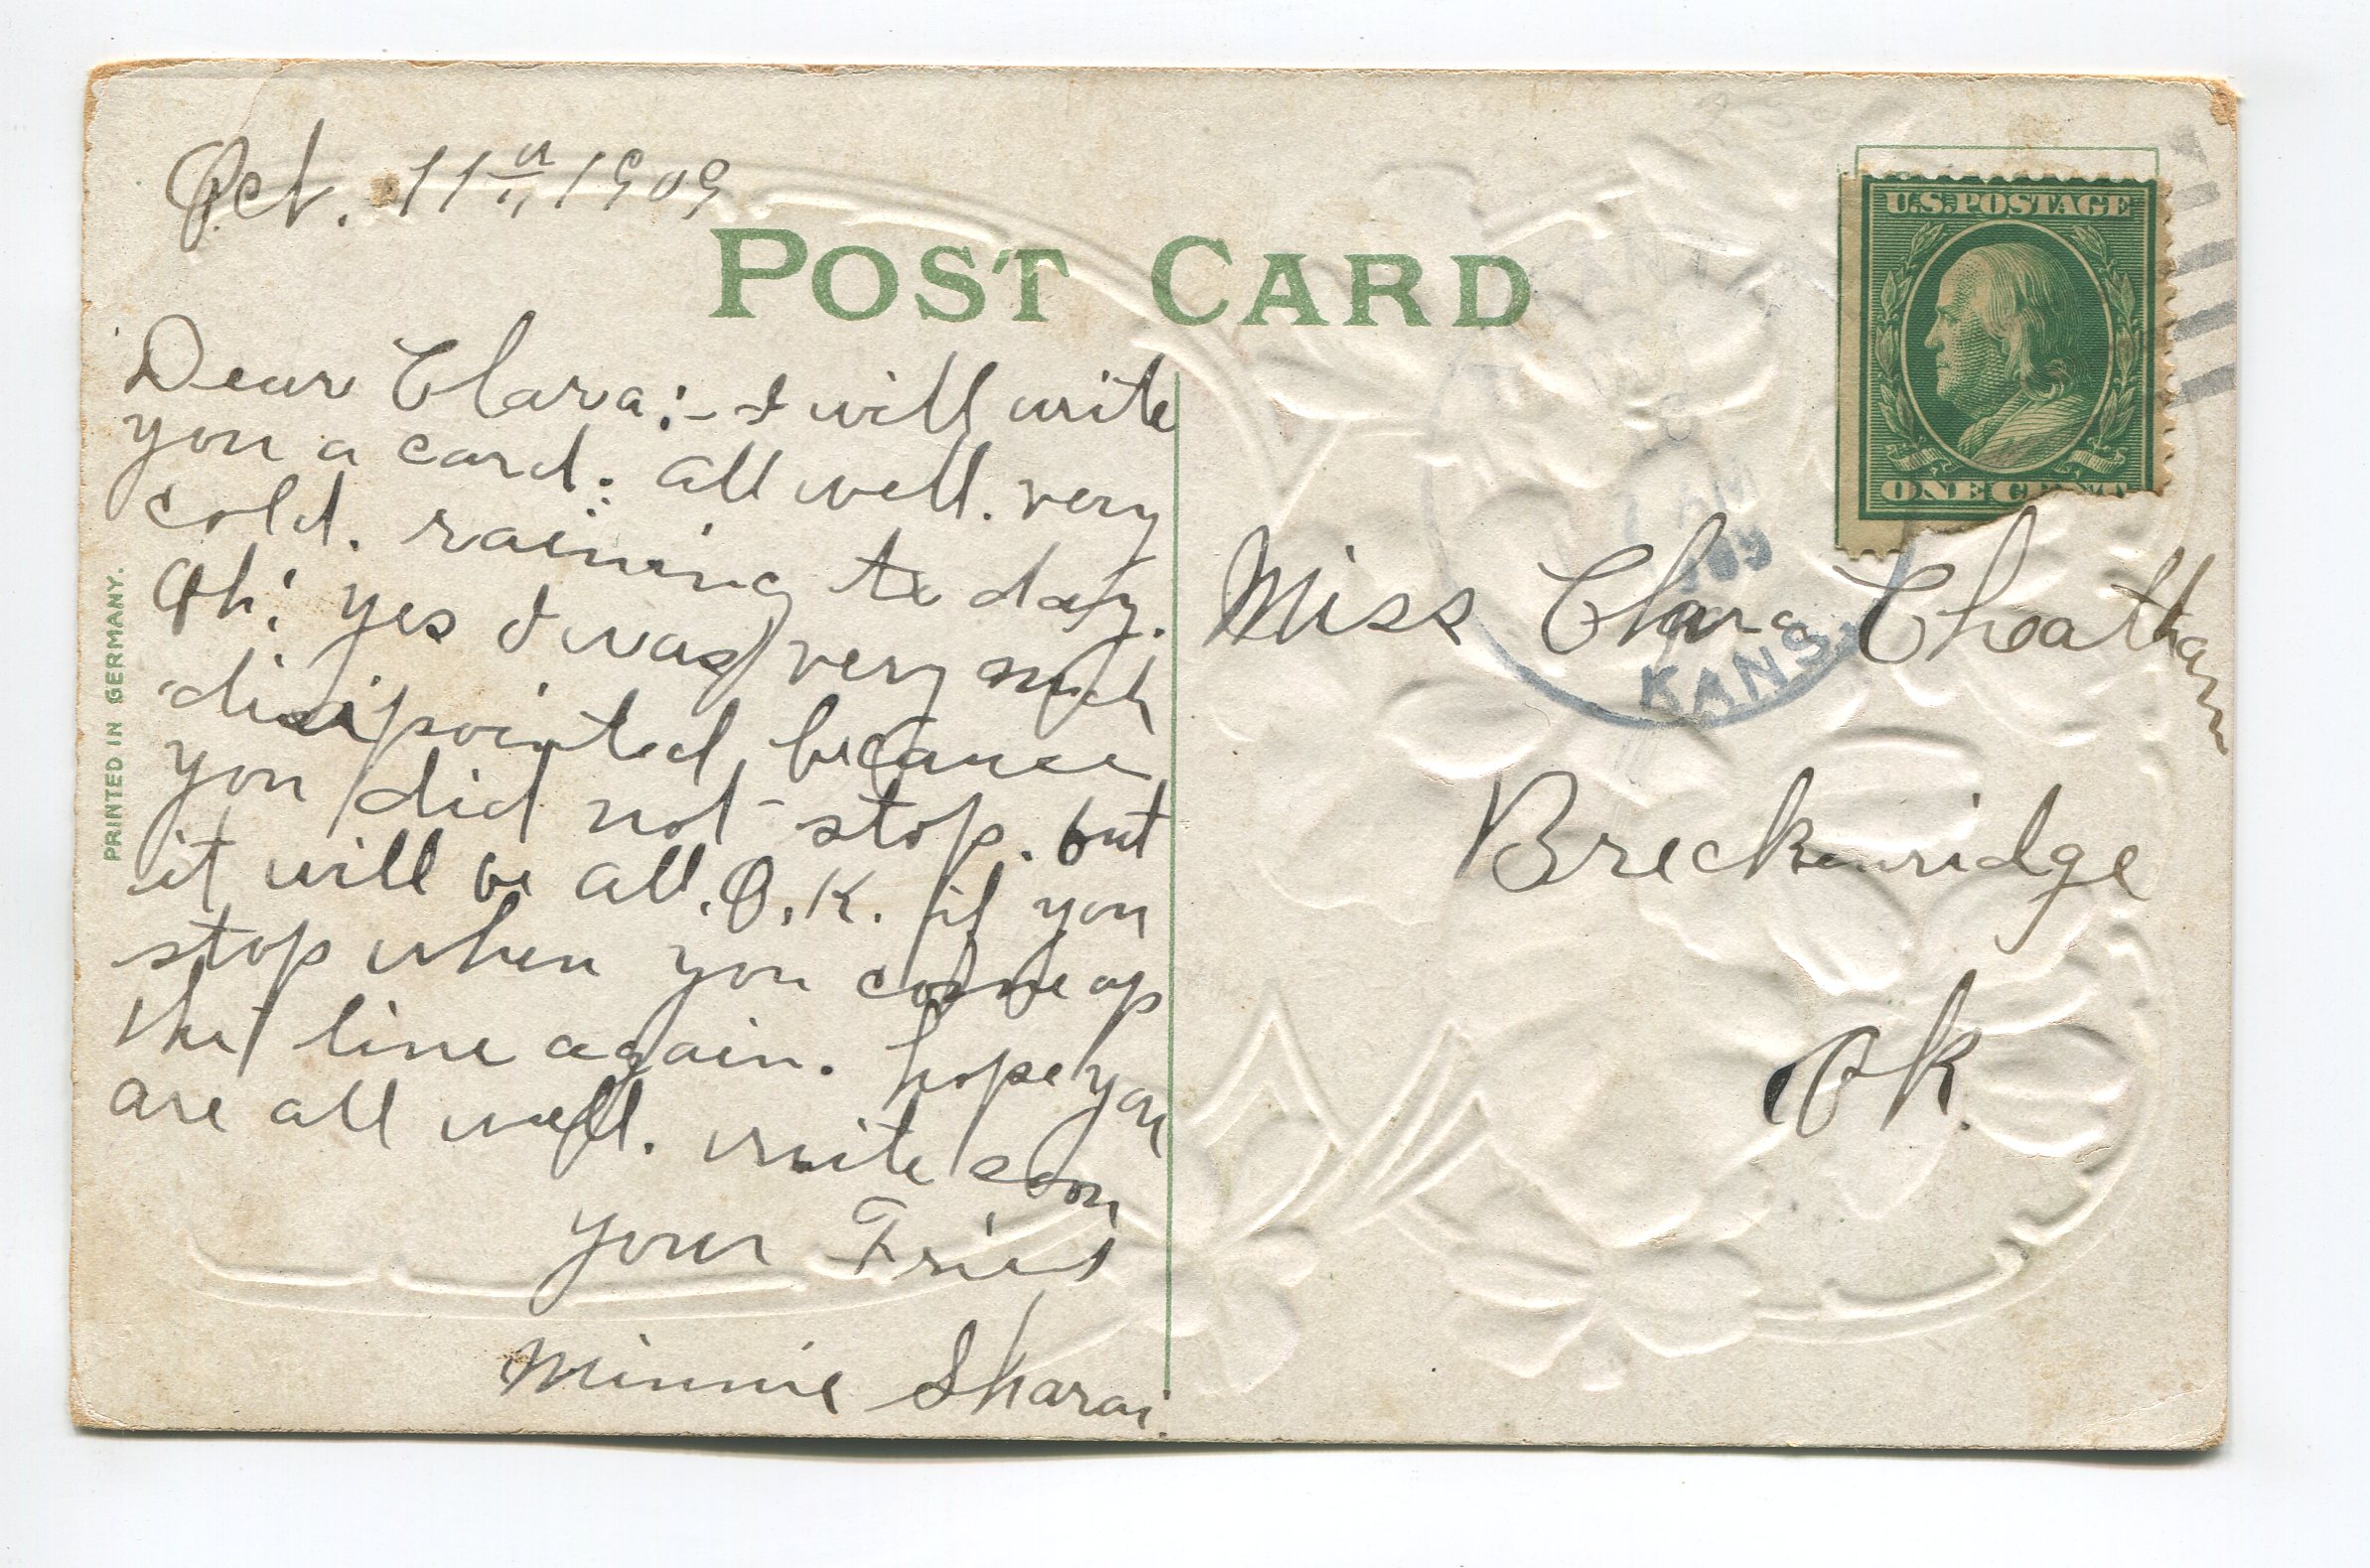 Oct. 11th, 1909
POST CARD
Dear Clara:- I will write
you a card: all well. very
cold. raining to day.
Oh! yes I was very much
disipointed, because
you did not stop. but
it will be all. O.K. if you
stop when you come up
the line again. hope you
are all well. write soon
your Fried
Minnie Sharai.
PRINTED IN GERMANY.
U.S. POSTAGE
ONE CENT
AM
KANS.
Miss Clara Cheatham
Breckenridge
Ok.